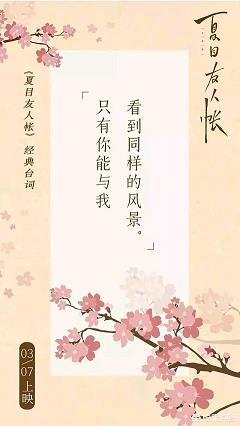 夏目友人帐
《夏目友人帐》经典台词
「只有你能与我
看到同样的风景。」
03/07上映